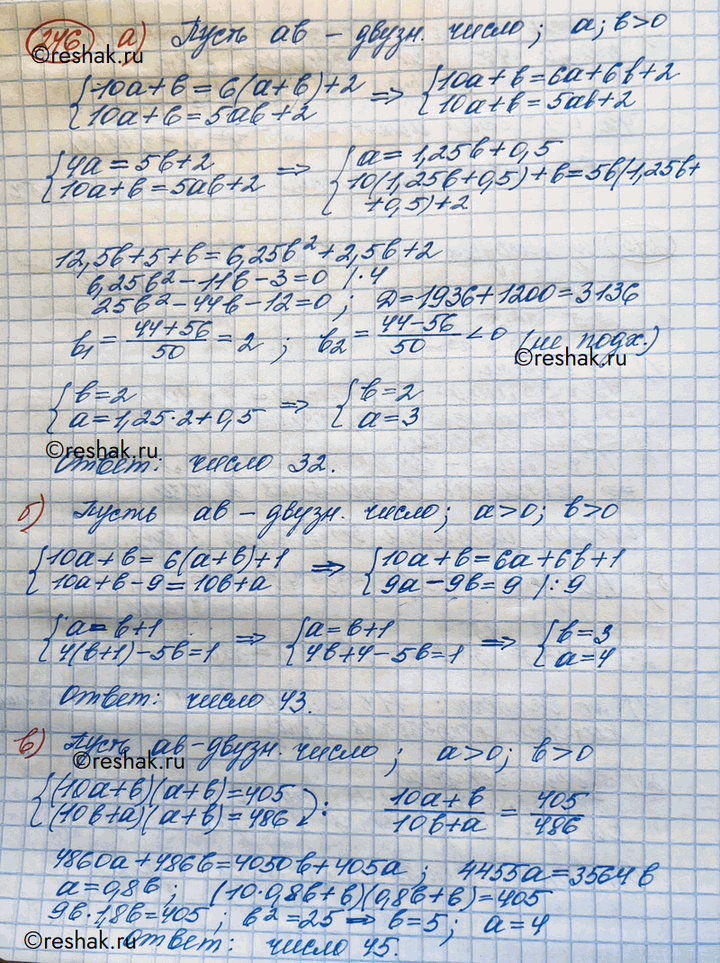 246. а) Пусть ав – двузн. число; а; в>0
©reshak.ru
{10а+в=6(а+в)+2 => {10а+в=6а+6в+2
{10а+в=5ав+2 {10а+в=5ав+2
{4а=5в+2 => {а=1,25в+0,5
{10а+в=5ав+2 {10(1,25в+0,5)+в=5в(1,25в+
+0,5)+2
12,5в+5+в=6,25в²+2,5в+2
6,25в²-11в-3=0 |·4
25в²-44в-12=0; Д=1936+1200=3136
в₁=(44+56)/50=2; в₂=(44-56)/50<0 (не подх.)
©reshak.ru
{в=2 => {в=2
{а=1,25·2+0,5 {а=3
©reshak.ru
Ответ: число 32.
б) Пусть ав – двузн. число; а>0; в>0
{10а+в=6(а+в)+1 => {10а+в=6а+6в+1
{10а+в-9=10в+а {9а-9в=9 |:9
{а=в+1 => {а=в+1 => {в=3
{4(в+1)-5в=1 {4в+4-5в=1 {а=4
Ответ: число 43.
в) Пусть ав-двузн. число; а>0; в>0
©reshak.ru
{(10а+в)(а+в)=405 ): (10а+в)/(10в+а)=405/486
{(10в+а)(а+в)=486
4860а+486в=4050в+405а; 4455а=3564в
а=0,8в; (10·0,8в+в)(0,8в+в)=405
9в·1,8в=405; в²=25 => в=5; а=4
©reshak.ru
Ответ: число 45.